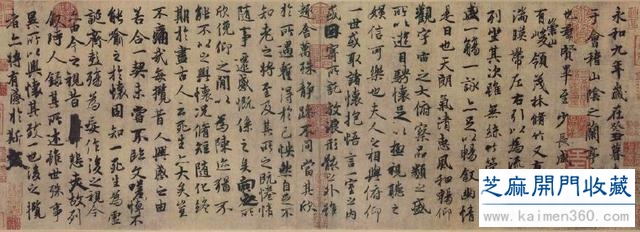 永和九年歲在癸丑暮
于會稽山陰之蘭亭
也羣賢畢至少長咸
崇山
有峻領茂林脩竹又
湍暎帶左右引以為流
列坐其次雖無絲竹
盛一觴一詠亦足以暢敘幽情
是日也天朗氣清惠風和暢仰
觀宇宙之大俯察品類之盛
所以遊目騁懷足以極視聽之
娛信可樂也夫人之相與俯仰
一世或取諸懷抱悟言一室之內
或因寄所託放浪形骸之外雖
趣舍萬殊靜躁不同當其欣
於所遇暫得於己怏然自足不
知老之將至及其所之既惓情
隨事遷感慨係之矣向之所
欣俛仰之閒以為陳迹猶不
能不以之興懷況脩短隨化終
期於盡古人云死生亦大矣豈
不痛哉每攬昔人興感之由
若合一契未嘗不臨文嗟悼不
能喻之於懷固知一死生為虛
誕齊彭殤為妄作後之視今
亦由今之視昔悲夫故列
敘時人錄其所述雖世殊事
異所以興懷其致一也後之攬
者亦將有感於斯文
芝麻開門收藏
www.kaimen360.com